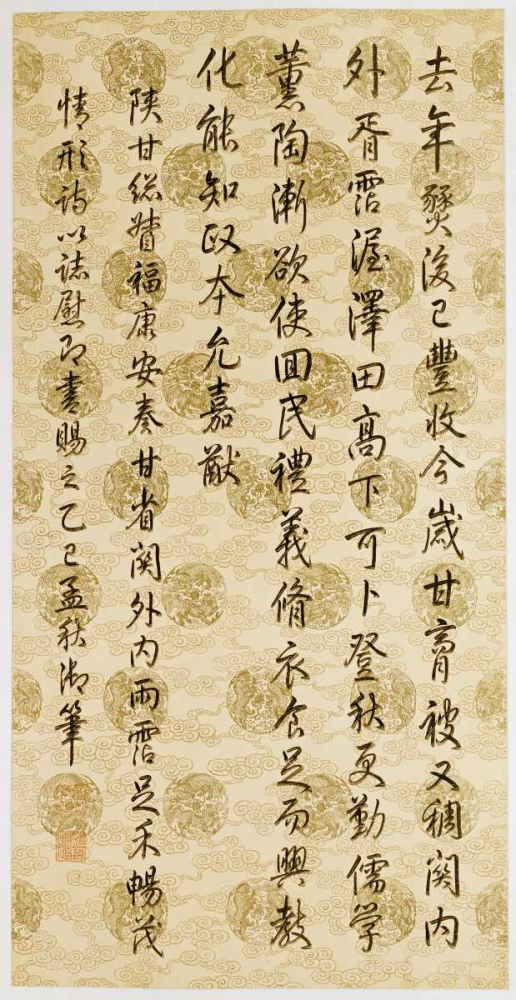 去年燹後已豐收今歲甘膏被又稠関内
外胥霑渥澤田高下可卜登秋更勤儒学
薰陶漸欲使回民禮義脩衣食足而興教
化能知政本允嘉猷
陝甘総督福康安奏甘省関外内雨霑足禾暢茂
情形詩以誌慰即書賜之乙巳孟秋御筆